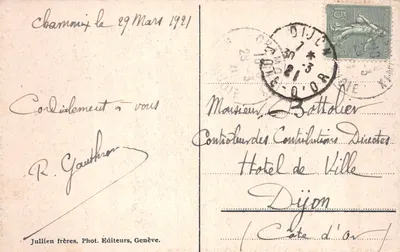 Chamonix le 29 Mars 1921
Cordialement à vous
R. Gauthron
Jullien frères, Phot. Editeurs, Genève.
DIJON
7 *
30 - 3
21
COTE-D'OR
Monsieur Bottolier
Contrôleur des Contributions Directes
Hotel de Ville
Dijon
(Cote d'Or)